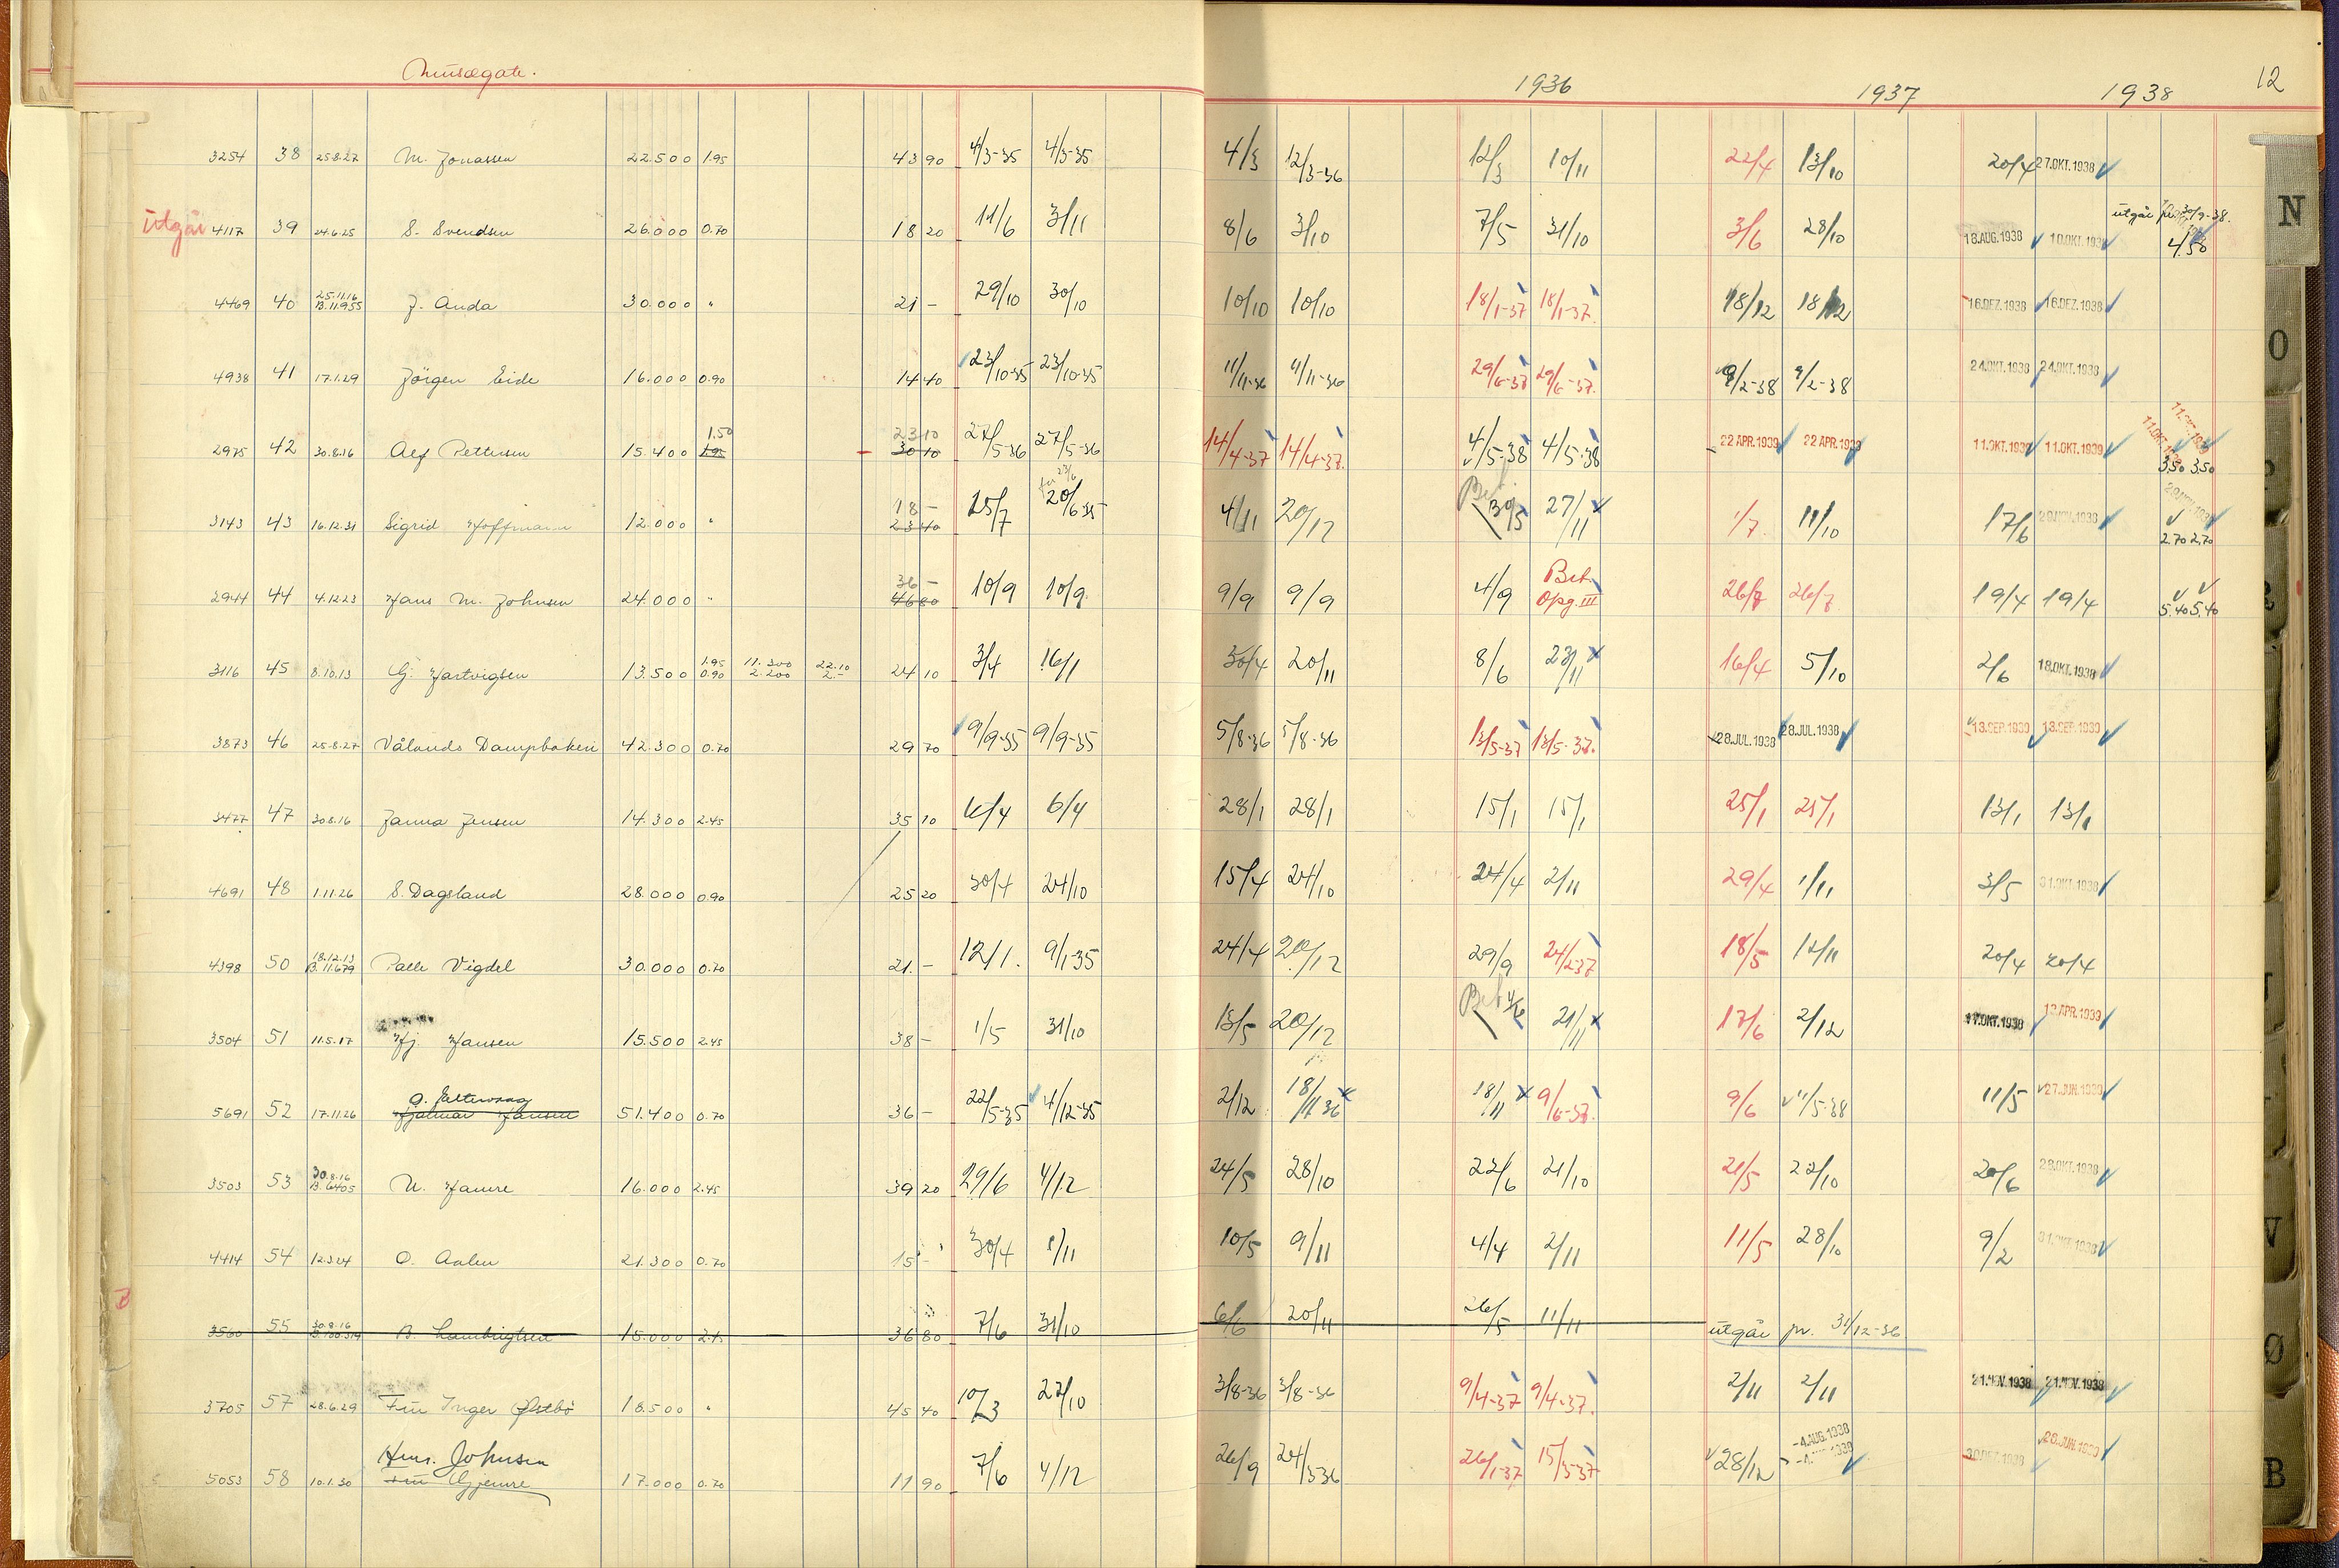 Museegate.
1936 1937 1938 12
3254 38 25.8.27 M. Jonassen 22.500 1.95 43 90 4/3-35 4/3-35 4/3 12/3-36 12/3 10/11 22/4 13/10 20/4 27.OKT.1938
utgår pr. 30/9-38.
utgår 4117 39 24.6.25 S. Svendsen 26.000 0.70 18 20 11/6 3/11 8/6 3/10 7/5 31/10 3/6 28/10 18.AUG.1938 10.OKT.193 4.58
4469 40 25.11.16 B.11.955 J. Anda 30.000 " 21 - 29/10 30/10 10/10 10/10 18/1-37 18/1-37. 18/12 18/12 16.DEZ.1938 16.DEZ.1938
4938 41 17.1.29 Jörgen Eide 16.000 0.90 14 40 23/10-35 23/10-35 11/11-36 11/11-36 29/6-37 29/6-37. 9/2-38 9/2-38 24.OKT.1938 24.OKT.1938
2975 42 30.8.16 Alf Pettersen 15.400 1.50 1.95 23 10 30 10 27/5-36 27/5-36 14/4-37 14/4-37. 4/5-38 4/5-38 22 APR.1939 22 APR.1939 11.OKT.1939 11.OKT.1939 3.50 3.50
3143 43 16.12.31 Sigrid Hoffmann 12.000 " 18 - 23 40 25/7 20/6-35 4/11 20/12 Bet. 30/5 27/11 1/7. 11/10 17/6 2.70 2.70
2944 44 4.12.23 Hans M. Johnsen 24.000 " 36 - 46 80 10/9 10/9 9/9 9/9 4/9 Bet. Opg. III 26/7 26/7 19/4 19/4 5.40 5.40
3116 45 8.10.13 G. Hartvigsen 13.500 1.95 0.90 11.300 2.200 22.10 2.- 24 10 3/4 16/1 30/4 20/11 8/6 23/11 16/4 5/10 2/6 18.OKT.1938
3873 46 25.8.27 Vålands Dampbakeri 42.300 0.70 29 70 9/9-35 9/9-35 5/8-36 5/8-36 13/5-37 13/5-37. 28.JUL.1938 28.JUL.1938 13.SEP.1939 13.SEP.1939
3477 47 30.8.16 Janna Jensen 14.300 2.45 35 10 6/4 6/4 28/1 28/1 15/1 15/1 25/1 25/1 13/1 13/1
4691 48 1.11.26 S. Dagsland 28.000 0.90 25 20 30/4 24/10 15/4 24/10 24/4 2/11 29/4 1/11 3/5 31.OKT.1938
4398 50 18.12.13 B.11.679 Palle Vigdel 30.000 0.70 21. - 12/1. 9/1-35 24/4 20/12 29/9 24/2-37 18/5 12/11 20/4 20/4
3504 51 11.5.17 Hj. Hansen 15.500 2.45 38 - 1/5 31/10 13/5 20/12 Bet. 4/6 21/11 17/6 2/12 17.OKT.1938 13.APR.1939
5691 52 17.11.26 Hjalmar Hansen 51.400 0.70 36 - 22/5-35 4/12-35 2/12 18/11 36 18/11 9/6-37. 9/6 11/5-38 11/5 27.JUN.1939
3503 53 30.8.16 B.6405 N. Hamre 16.000 2.45 39 20 29/6 4/12 24/5 28/10 22/6 21/10 21/5 22/10 20/6 28.OKT.1938
4414 54 12.3.24 O. Aalen 21.300 0.70 15 - 30/4 1/11 10/5 9/11 4/4 2/11 11/5 28/10 9/2 31.OKT.1938
3560 55 30.8.16 B. Lambrigtsen 15.000 2.45 36 80 7/6 31/10 6/6 20/11 26/5 11/11 utgår pr. 31/12-36
3705 57 28.6.29 Frü Inger Østbö 18.500 " 45 40 10/3 22/10 3/8-36 3/8-36 9/4-37 9/4-37. 2/11 2/11 21.NOV.1938 21.NOV.1938
Hans. Johnsen
5053 58 10.1.30 Frü Gjemre 17.000 0.70 11 90 7/6 4/12 26/9 24/3-36 26/1-37 15/3-37 28/12 -4.AUG.1938 30.DEZ.1938 28.JUN.1939
N
O
V
Ø
B